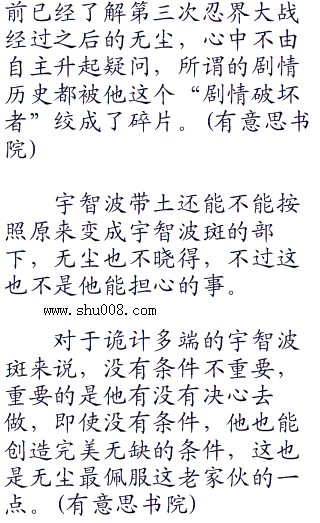 前已经了解第三次忍界大战
经过之后的无尘，心中不由
自主升起疑问，所谓的剧情
历史都被他这个“剧情破坏
者”绞成了碎片。(有意思书
院)
宇智波带土还能不能按
照原来变成宇智波斑的部
下，无尘也不晓得，不过这
也不是他能担心的事。
www.shu008.com
对于诡计多端的宇智波
斑来说，没有条件不重要，
重要的是他有没有决心去
做，即使没有条件，他也能
创造完美无缺的条件，这也
是无尘最佩服这老家伙的一
点。(有意思书院)